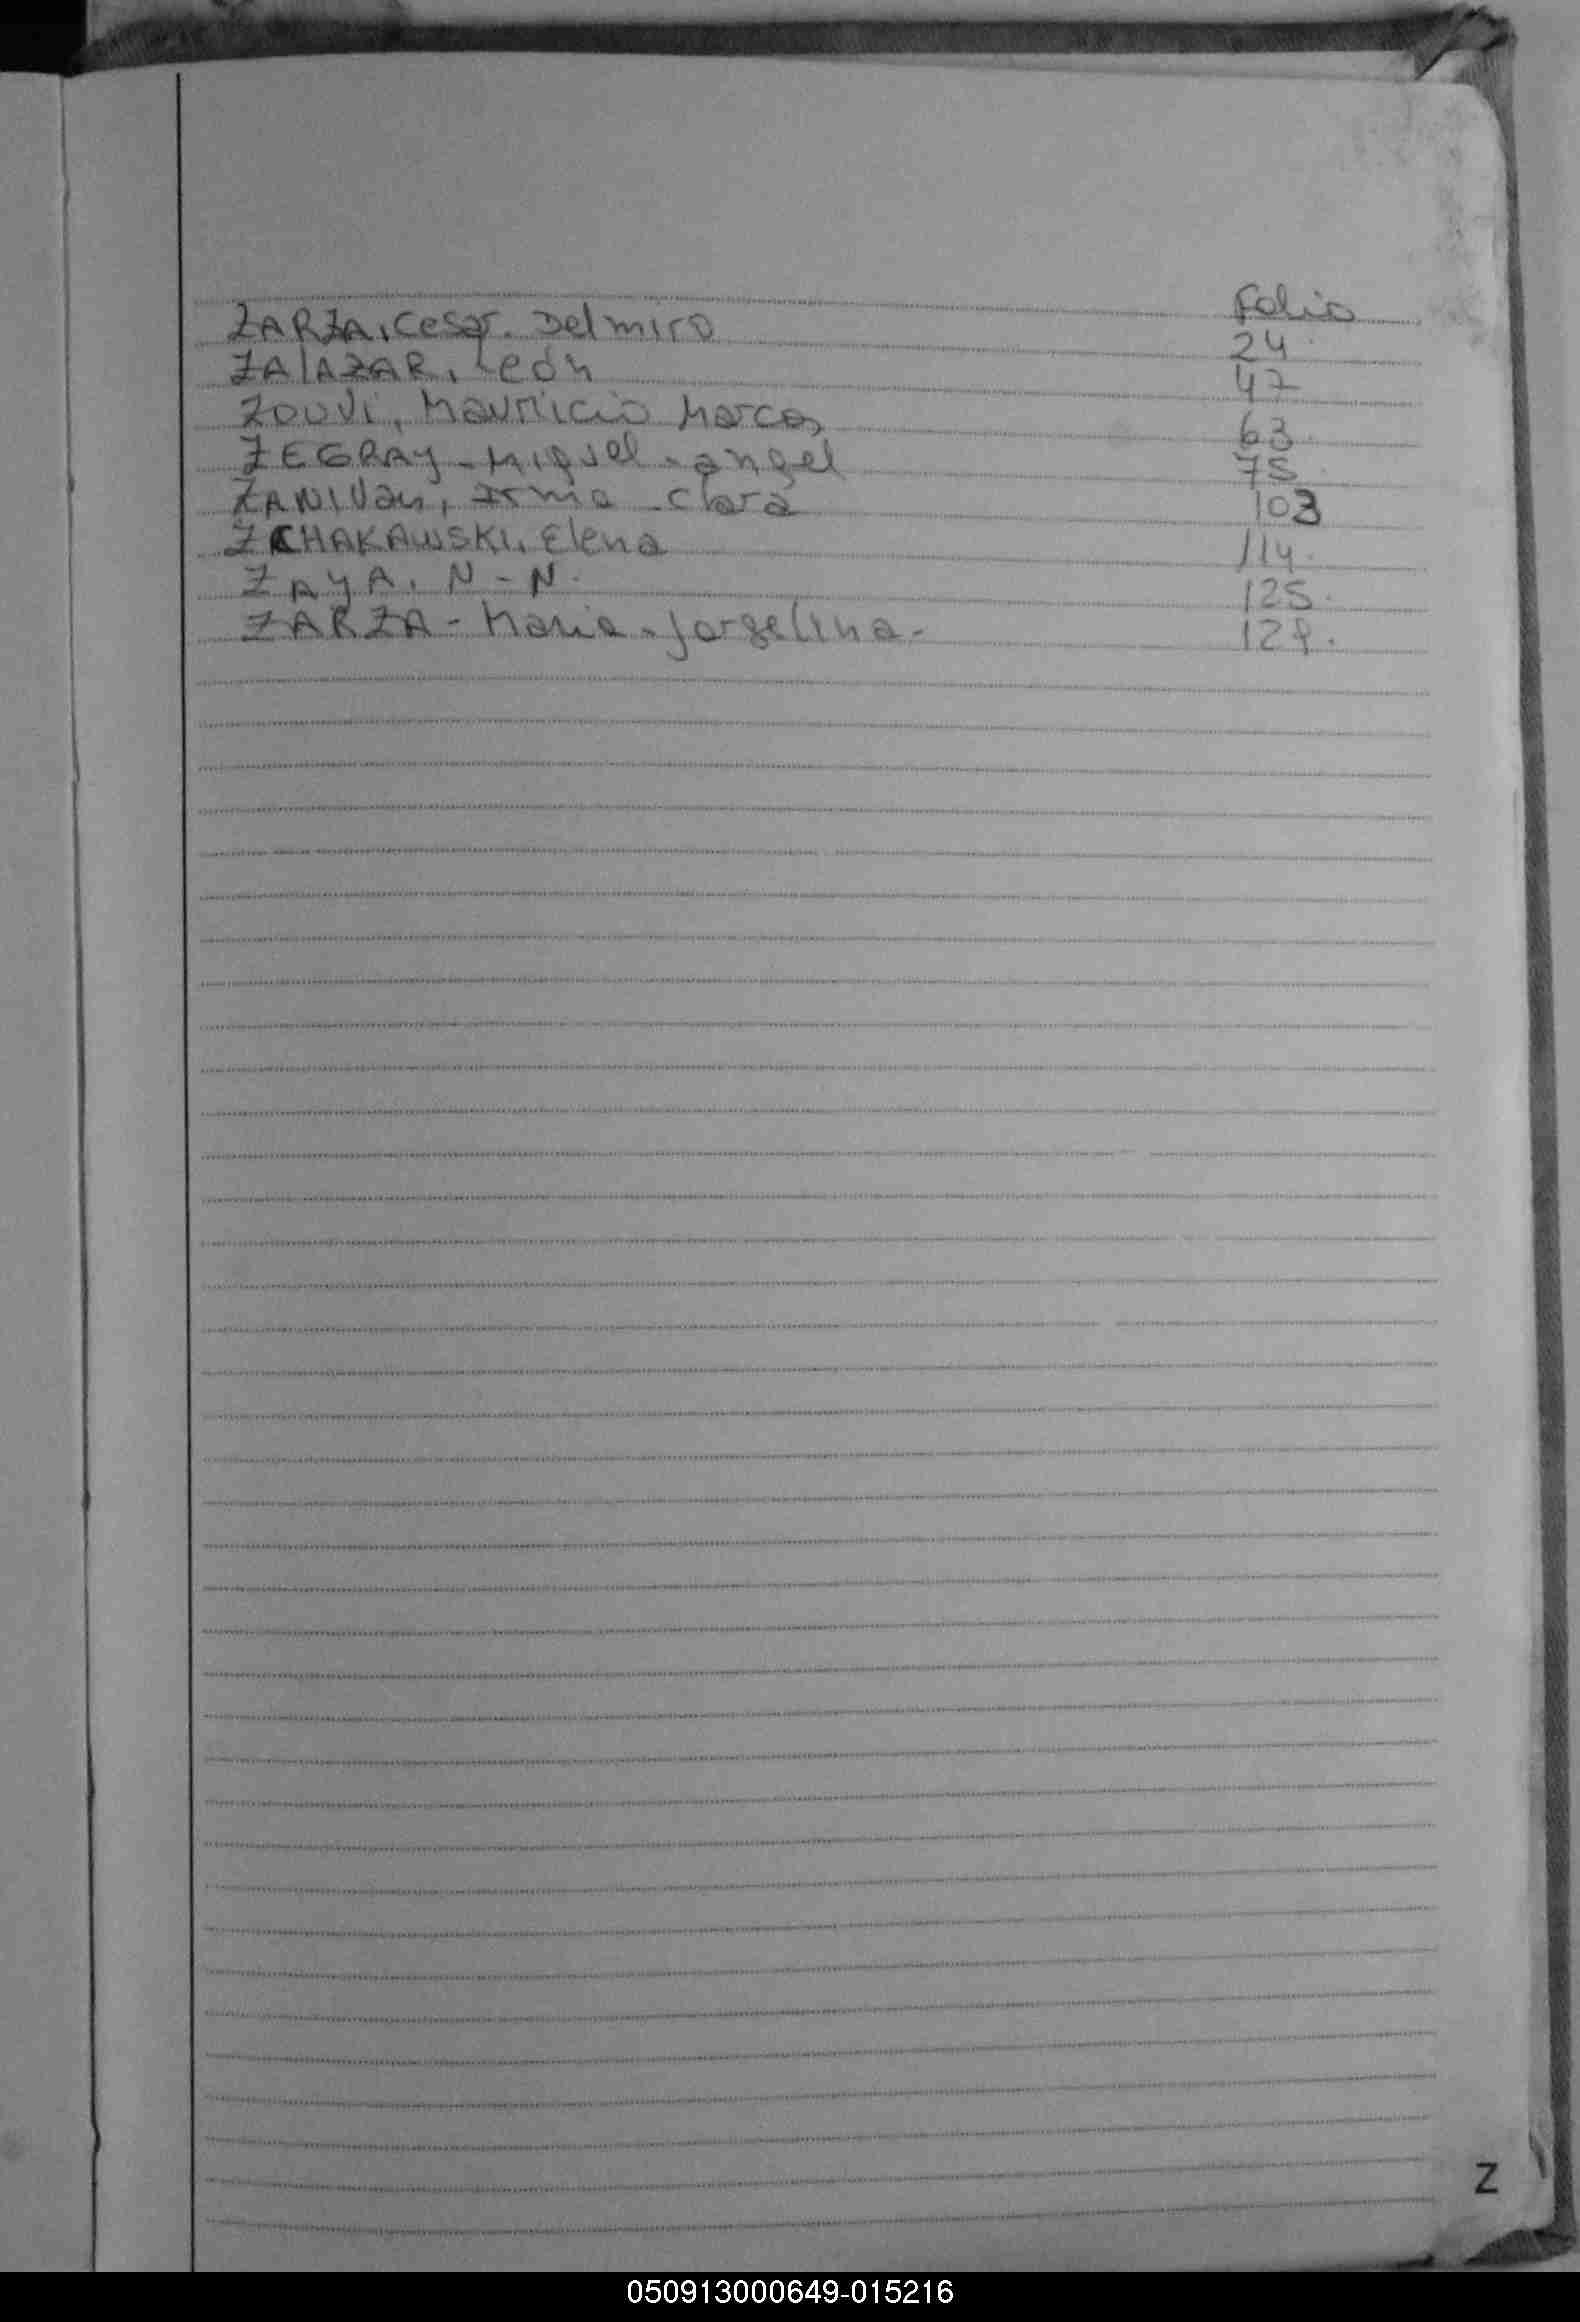 Folio
ZARZA, Cesar. Delmiro 24
ZALAZAR, León 47
ZOUVI, Mauricio Marcos 63
ZEGRAY - Miguel - angel 75
ZANIVan, Irma - Clara 103
ZCHAKAWSKI, Elena 114.
ZAYA, N - N. 125.
ZARZA - Maria - Jorgelina -
Z
050913000649-015216